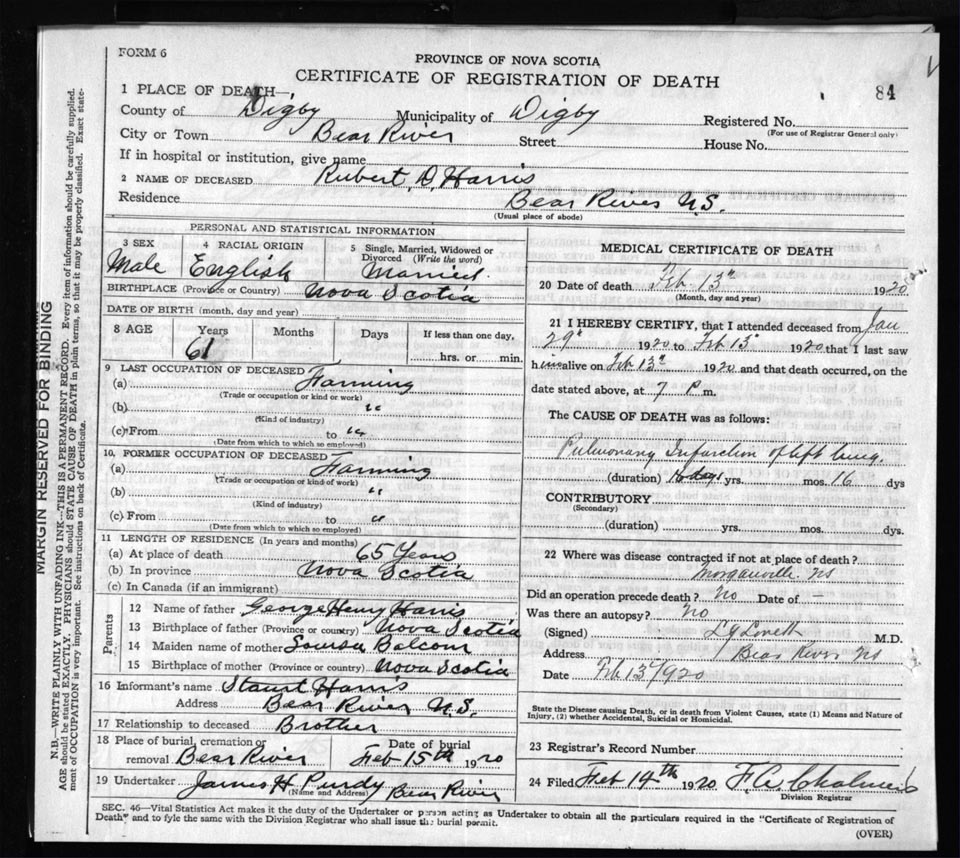 FORM 6
PROVINCE OF NOVA SCOTIA
CERTIFICATE OF REGISTRATION OF DEATH
84
1 PLACE OF DEATH—
County of Digby Municipality of Digby Registered No.
(For use of Registrar General only)
City or Town Bear River Street House No.
If in hospital or institution, give name
2 NAME OF DECEASED Rubert D. Harris
Residence Bear River N.S.
(Usual place of abode)
PERSONAL AND STATISTICAL INFORMATION
3 SEX Male
4 RACIAL ORIGIN English
5 Single, Married, Widowed or Divorced (Write the word) Married.
BIRTHPLACE (Province or Country) Nova Scotia
DATE OF BIRTH (month, day and year)
8 AGE Years 61 Months Days If less than one day, hrs. or min.
9 LAST OCCUPATION OF DECEASED
(a) Farming
(Trade or occupation or kind or work)
(b) "
(Kind of industry)
(c) From to "
(Date from which to which so employed)
10. FORMER OCCUPATION OF DECEASED
(a) Farming
(Trade or occupation or kind of work)
(b) "
(Kind of industry)
(c) From to "
(Date from which to which so employed)
11 LENGTH OF RESIDENCE (In years and months)
(a) At place of death 65 Years
(b) In province Nova Scotia
(c) In Canada (if an immigrant)
Parents
12 Name of father George Henry Harris
13 Birthplace of father (Province or country) Nova Scotia
14 Maiden name of mother Lousia Balcom
15 Birthplace of mother (Province or country) Nova Scotia
16 Informant's name Stuart Harris
Address Bear River N.S.
17 Relationship to deceased Brother
18 Place of burial, cremation or removal Bear River Date of burial Feb 15th 1920
19 Undertaker James H Purdy Bear River
(Name and Address)
MEDICAL CERTIFICATE OF DEATH
20 Date of death Feb. 13th 1920
(Month, day and year)
21 I HEREBY CERTIFY, that I attended deceased from Jan
29th 1920 to Feb 13 1920 that I last saw
him alive on Feb 13th 1920 and that death occurred, on the
date stated above, at 7 P. m.
The CAUSE OF DEATH was as follows:
Pulmonary Infarction of left lung.
(duration) yrs. mos. 16 dys
CONTRIBUTORY
(Secondary)
(duration) yrs. mos. dys.
22 Where was disease contracted if not at place of death?
Morganville. NS
Did an operation precede death? No Date of —
Was there an autopsy? No
(Signed) L J Lovett M.D.
Address Bear River NS
Date Feb 13/1920
State the Disease causing Death, or in death from Violent Causes, state (1) Means and Nature of
Injury, (2) whether Accidental, Suicidal or Homicidal.
23 Registrar's Record Number
24 Filed Feb 14th 1920 F. A. Chalmers
Division Registrar
SEC. 46—Vital Statistics Act makes it the duty of the Undertaker or person acting as Undertaker to obtain all the particulars required in the "Certificate of Registration of
Death" and to fyle the same with the Division Registrar who shall issue the burial permit.
(OVER)
MARGIN RESERVED FOR BINDING
N.B.—WRITE PLAINLY WITH UNFADING INK—THIS IS A PERMANENT RECORD. Every item of information should be carefully supplied.
AGE should be stated EXACTLY. PHYSICIANS should STATE CAUSE OF DEATH in plain terms, so that it may be properly classified. Exact state-
ment of OCCUPATION is very important. See instructions on back of Certificate.